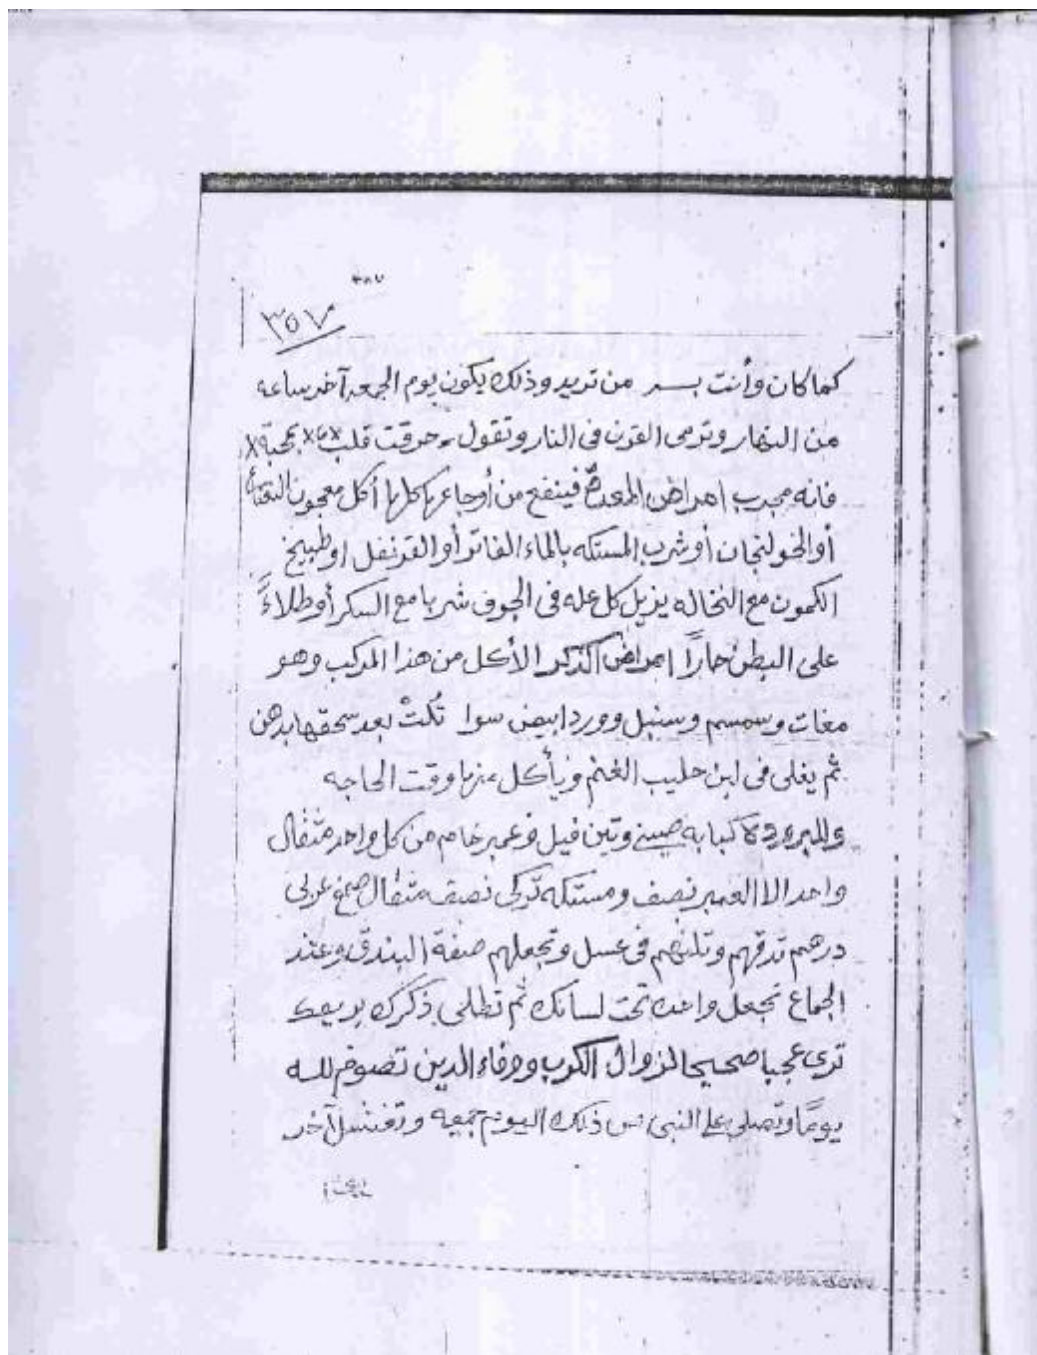 ٣٨٧
٣٥٧
كما كان وأنت بسر من تريد وذلك يكون يوم الجمعه آخر ساعه
من النهار وترمى القرن فى النار وتقول حرقت قلب بمحبة
فانه مجرب امراض المعدة فينفع من أوجاعها كلها أكل معجون
أو الخولنجان أو شرب المستكه بالماء الفاتر أو القرنفل او طبيخ
الكمون مع النخاله يزيل كل عله فى الجوف شربا مع السكر أو طلاءً
على البطن حاراً امراض الذكر الأكل من هذا المركب وهو
مغات وسمسم وسنبل وورد ابيض سوا تُلتْ بعد سحقها بدهن
ثم يغلى فى لبن حليب الغنم ويأكل منها وقت الحاجه
وللبرودة كبابه صينى وتين فيل وعمبر خام من كل واحد مثقال
واحد الا العمبر نصف ومستكه تركى نصف مثقال صمغ عربى
درهم تدقهم وتلتهم فى عسل وتجعلهم صفة البندق وعند
الجماع تجعل واحده تحت لسانك ثم تطلى ذكرك بريقك
ترى عجبا صحيحا لزوال الكرب ووفاء الدين تصوم لله
يومًا وتصلى على النبى ذلك اليوم جميعه وتغتسل آخر